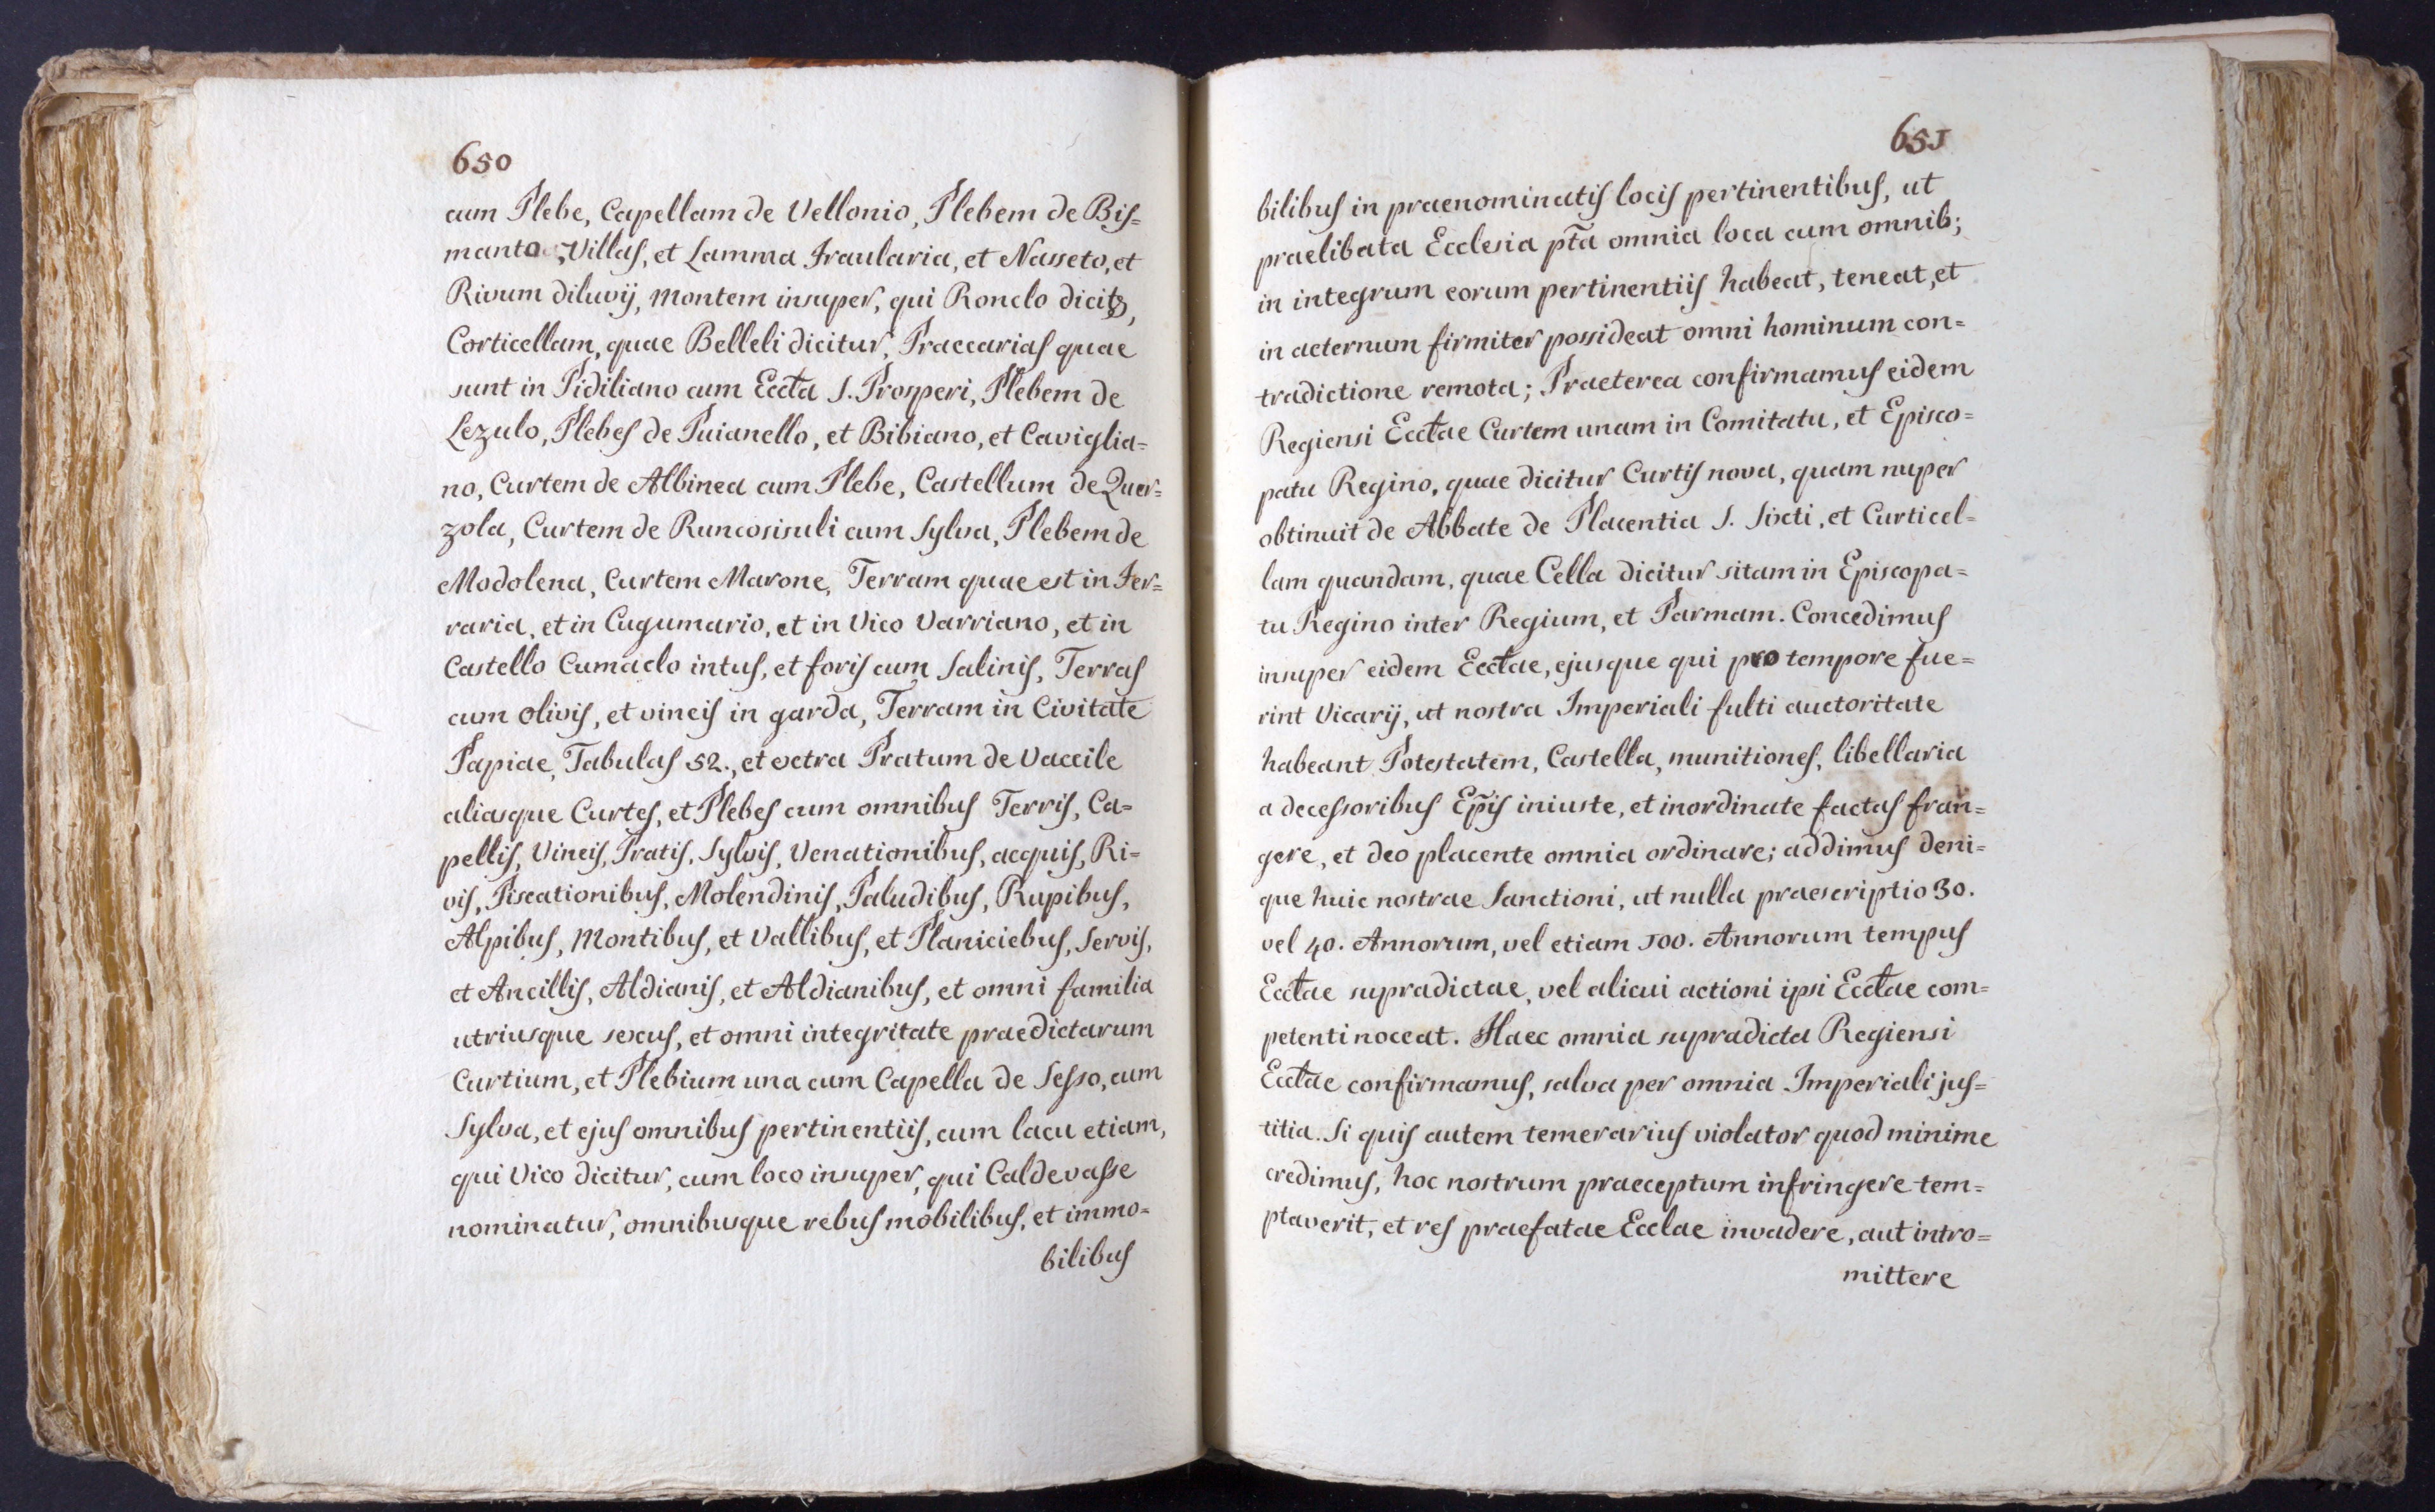 650
cum Plebe, Capellam de Vellonio, Plebem de Bis=
manto, Villas, et Lamma Fraularia, et Nasseto, et
Rivum diluvij, Montem insuper, qui Ronclo dicit᷑,
Corticellam, quae Belleli dicitur, Praecarias quae
sunt in Pidiliano cum Eccła S. Prosperi, Plebem de
Lezulo, Plebes de Puianello, et Bibiano, et Caviglia=
no, Curtem de Albinea cum Plebe, Castellum de Quer=
zola, Curtem de Runcosisuli cum Sylva, Plebem de
Modolena, Curtem Marone, Terram quae est in Fer=
raria, et in Cugumario, et in Vico Varriano, et in
Castello Cumaclo intus, et foris cum Salinis, Terras
cum olivis, et vineis in garda, Terram in Civitate
Papiae, Tabulas 52., et extra Pratum de Vaccile
aliasque Curtes, et Plebes cum omnibus Terris, Ca=
pellis, Vineis, Pratis, Sylvis, Venationibus, acquis, Ri=
vis, Piscationibus, Molendinis, Paludibus, Rupibus,
Alpibus, Montibus, et Vallibus, et Planiciebus, Servis,
et Ancillis, Aldianis, et Aldianibus, et omni familia
utriusque sexus, et omni integritate praedictarum
Curtium, et Plebium una cum Capella de Sesso, cum
Sylva, et ejus omnibus pertinentiis, cum lacu etiam,
qui Vico dicitur, cum loco insuper, qui Caldevasse
nominatur, omnibusque rebus mobilibus, et immo=
bilibus
651
bilibus in praenominatis locis pertinentibus, ut
praelibata Ecclesia pt̃a omnia loca cum omnib;
in integrum eorum pertinentiis habeat, teneat, et
in aeternum firmiter possideat omni hominum con=
tradictione remota; Praeterea confirmamus eidem
Regiensi Eccłae Curtem unam in Comitatu, et Episco=
patu Regino, quae dicitur Curtis nova, quam nuper
obtinuit de Abbate de Placentia S. Sixti, et Curticel=
lam quandam, quae Cella dicitur sitam in Episcopa=
tu Regino inter Regium, et Parmam. Concedimus
insuper eidem Eccłae, ejusque qui pro tempore fue=
rint Vicarij, ut nostra Imperiali fulti auctoritate
habeant Potestatem, Castella, munitiones, libellaria
a decessoribus Ep̃is iniuste, et inordinate factas fran=
gere, et deo placente omnia ordinare; addimus deni=
que huic nostrae Sanctioni, ut nulla praescriptio 30.
vel 40. Annorum, vel etiam 100. Annorum tempus
Eccłae supradictae, vel alicui actioni ipsi Eccłae com=
petenti noceat. Haec omnia supradicta Regiensi
Eccłae confirmamus, salva per omnia Imperiali jus=
titia. Si quis autem temerarius violator quod minime
credimus, hoc nostrum praeceptum infringere tem=
ptaverit, et res praefatae Ecclae invadere, aut intro=
mittere